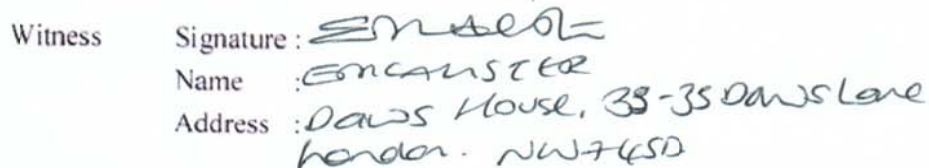 Witness Signature :
Name : EMCALISTER
Address : Daws House, 33-35 Daws Lane
London. NW7 4SD